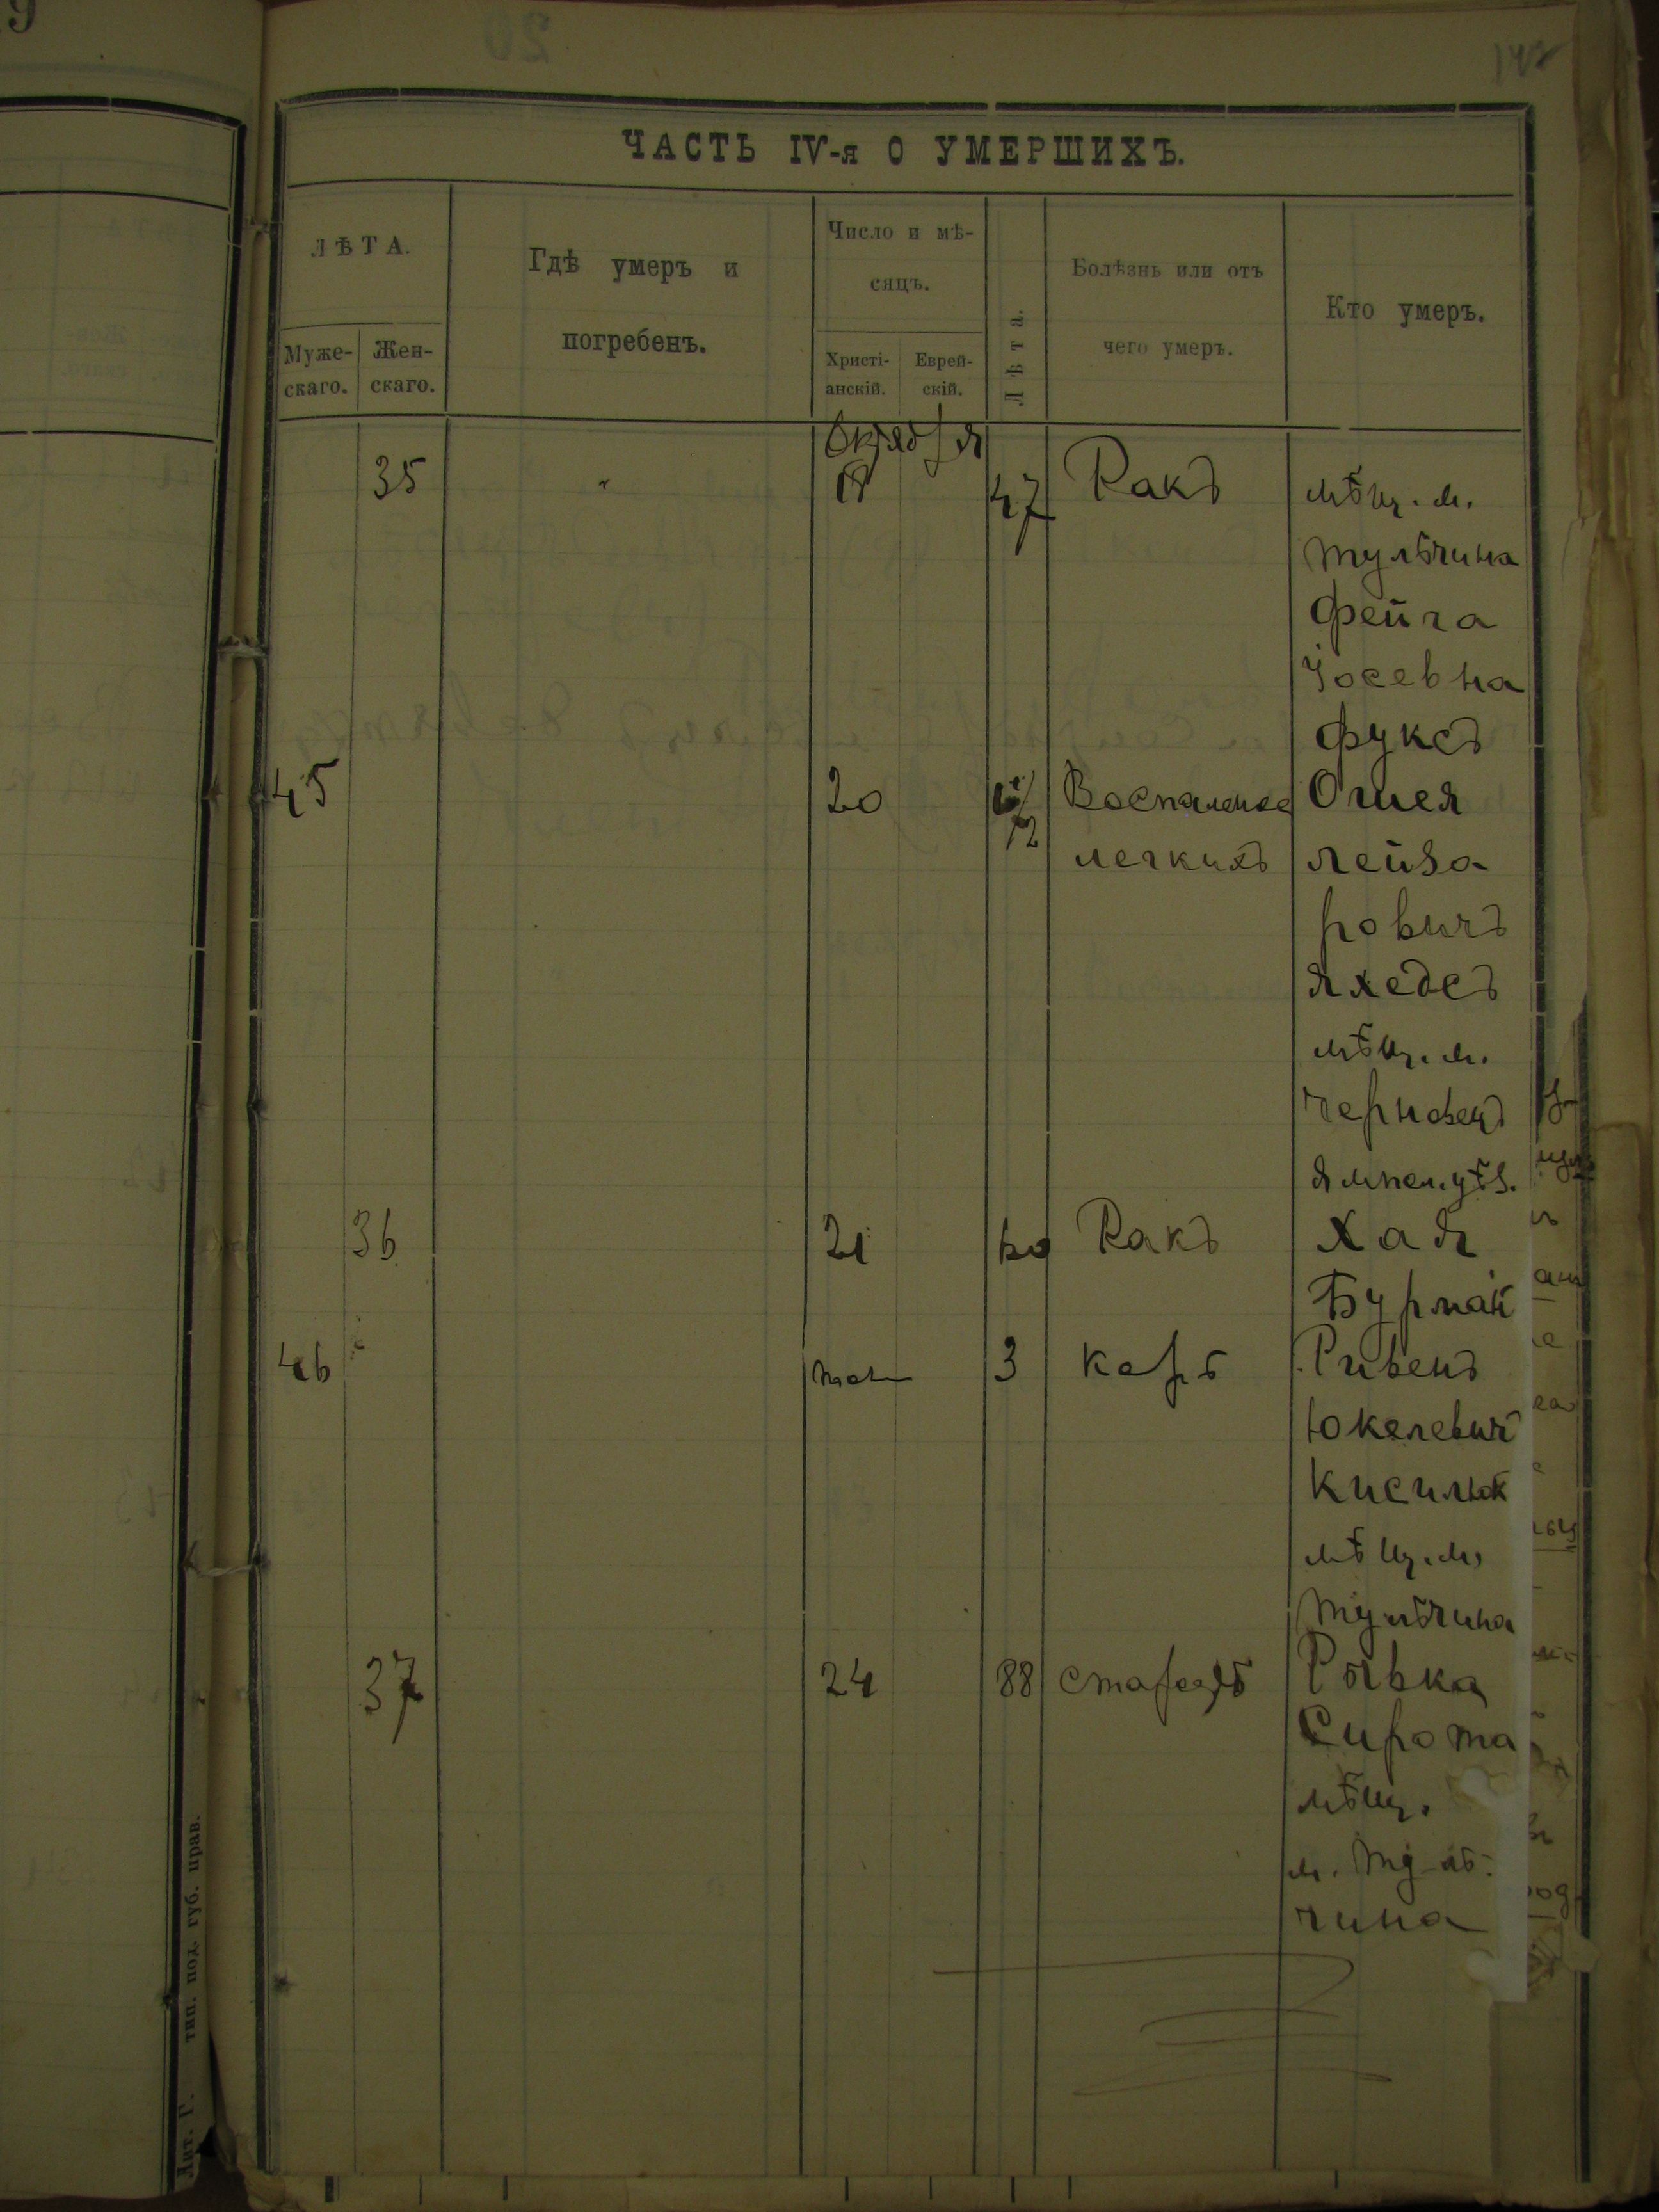 ЧАСТЬ IV-я О УМЕРШИХЪ.
ЛѢТА.
Муже-
скаго.
Жен-
скаго.
Гдѣ умеръ и
погребенъ.
Число и мѣ-
сяцъ.
Христі-
анскій.
Еврей-
скій.
Лѣта.
Болѣзнь или отъ
чего умеръ.
Кто умеръ.
Октября
35 " 47 Ракъ мѣщ. м.
тульчина
Фейга
Іосевна
Фуксъ
45 20 /12 Воспаление Ошея
легкихъ лейза
ровичъ
Яхедсъ
мѣщ. м.
Черновец
Ямпол. уѣз.
36 21 60 Ракъ Хая
Бурмак
46 3 Корь Ривенъ
Юкелевич
Кисилюк
мѣщ. м.
тульчина
37 24 88 старость Рывка
Сирота
мѣщ.
м. Туль-
чина
Лит. Г. тип. под. губ. прав.